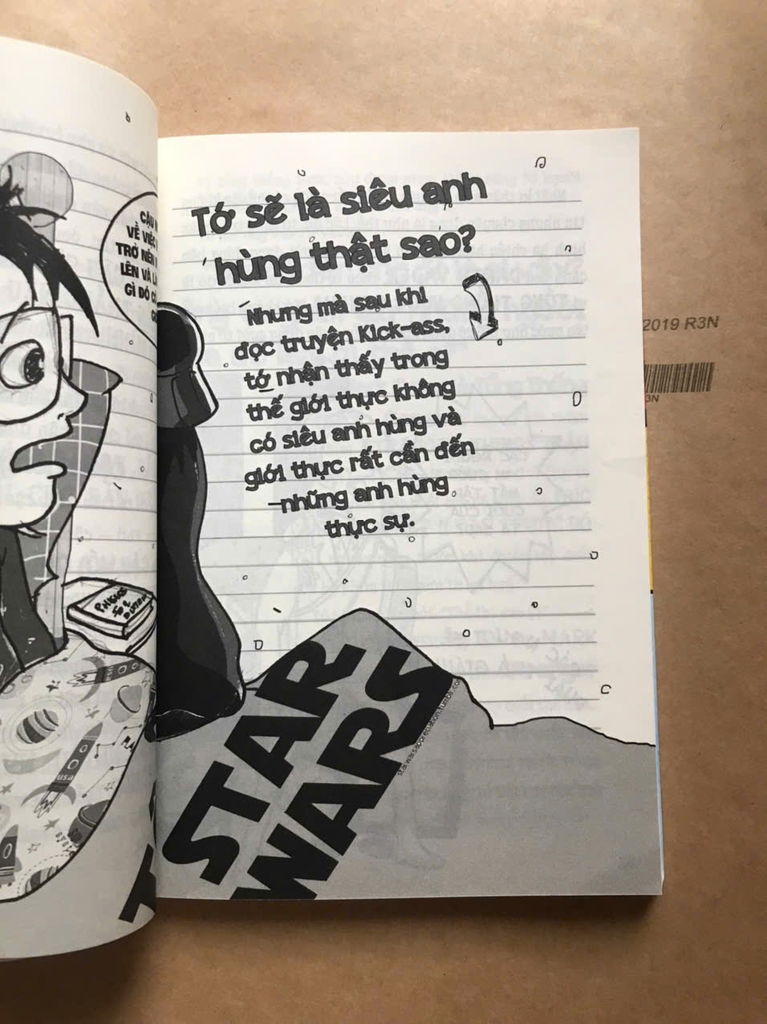 VỀ VIỆC
TRỞ NÊN
LÊN VÀ
GÌ ĐÓ
Tớ sẽ là siêu anh
hùng thật sao?
Nhưng mà sau khi
đọc truyện Kick-ass,
tớ nhận thấy trong
thế giới thực không
có siêu anh hùng và
giới thực rất cần đến
những anh hùng
thực sự.
2019 R3N
3N
PHYSICS
usa
STAR
WARS